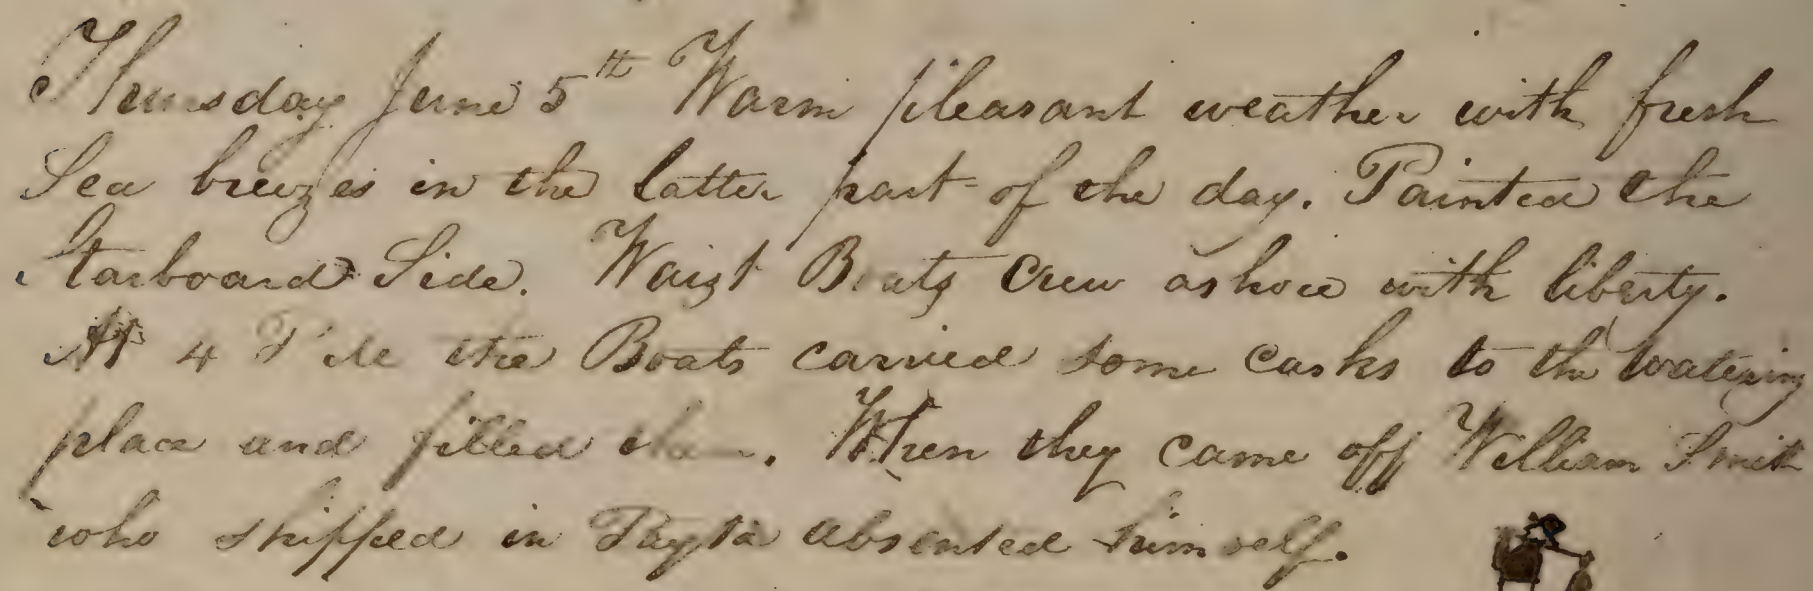 Thursday June 5th Warm pleasant weather with fresh
Sea breezes in the latter part of the day. Painted the
Starboard Side. Waist Boats Crew ashore with liberty.
At 4 P M the Boats carried some casks to the watering
place and filled them. When they came off William Smith
who shipped in Payta absented himself.